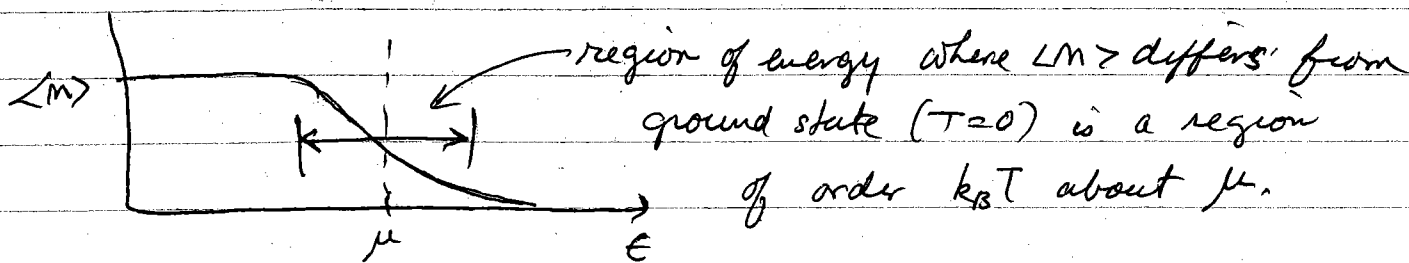 region of energy where <n> differs from
<n>
ground state (T=0) is a region
of order k_BT about μ.
μ
ε